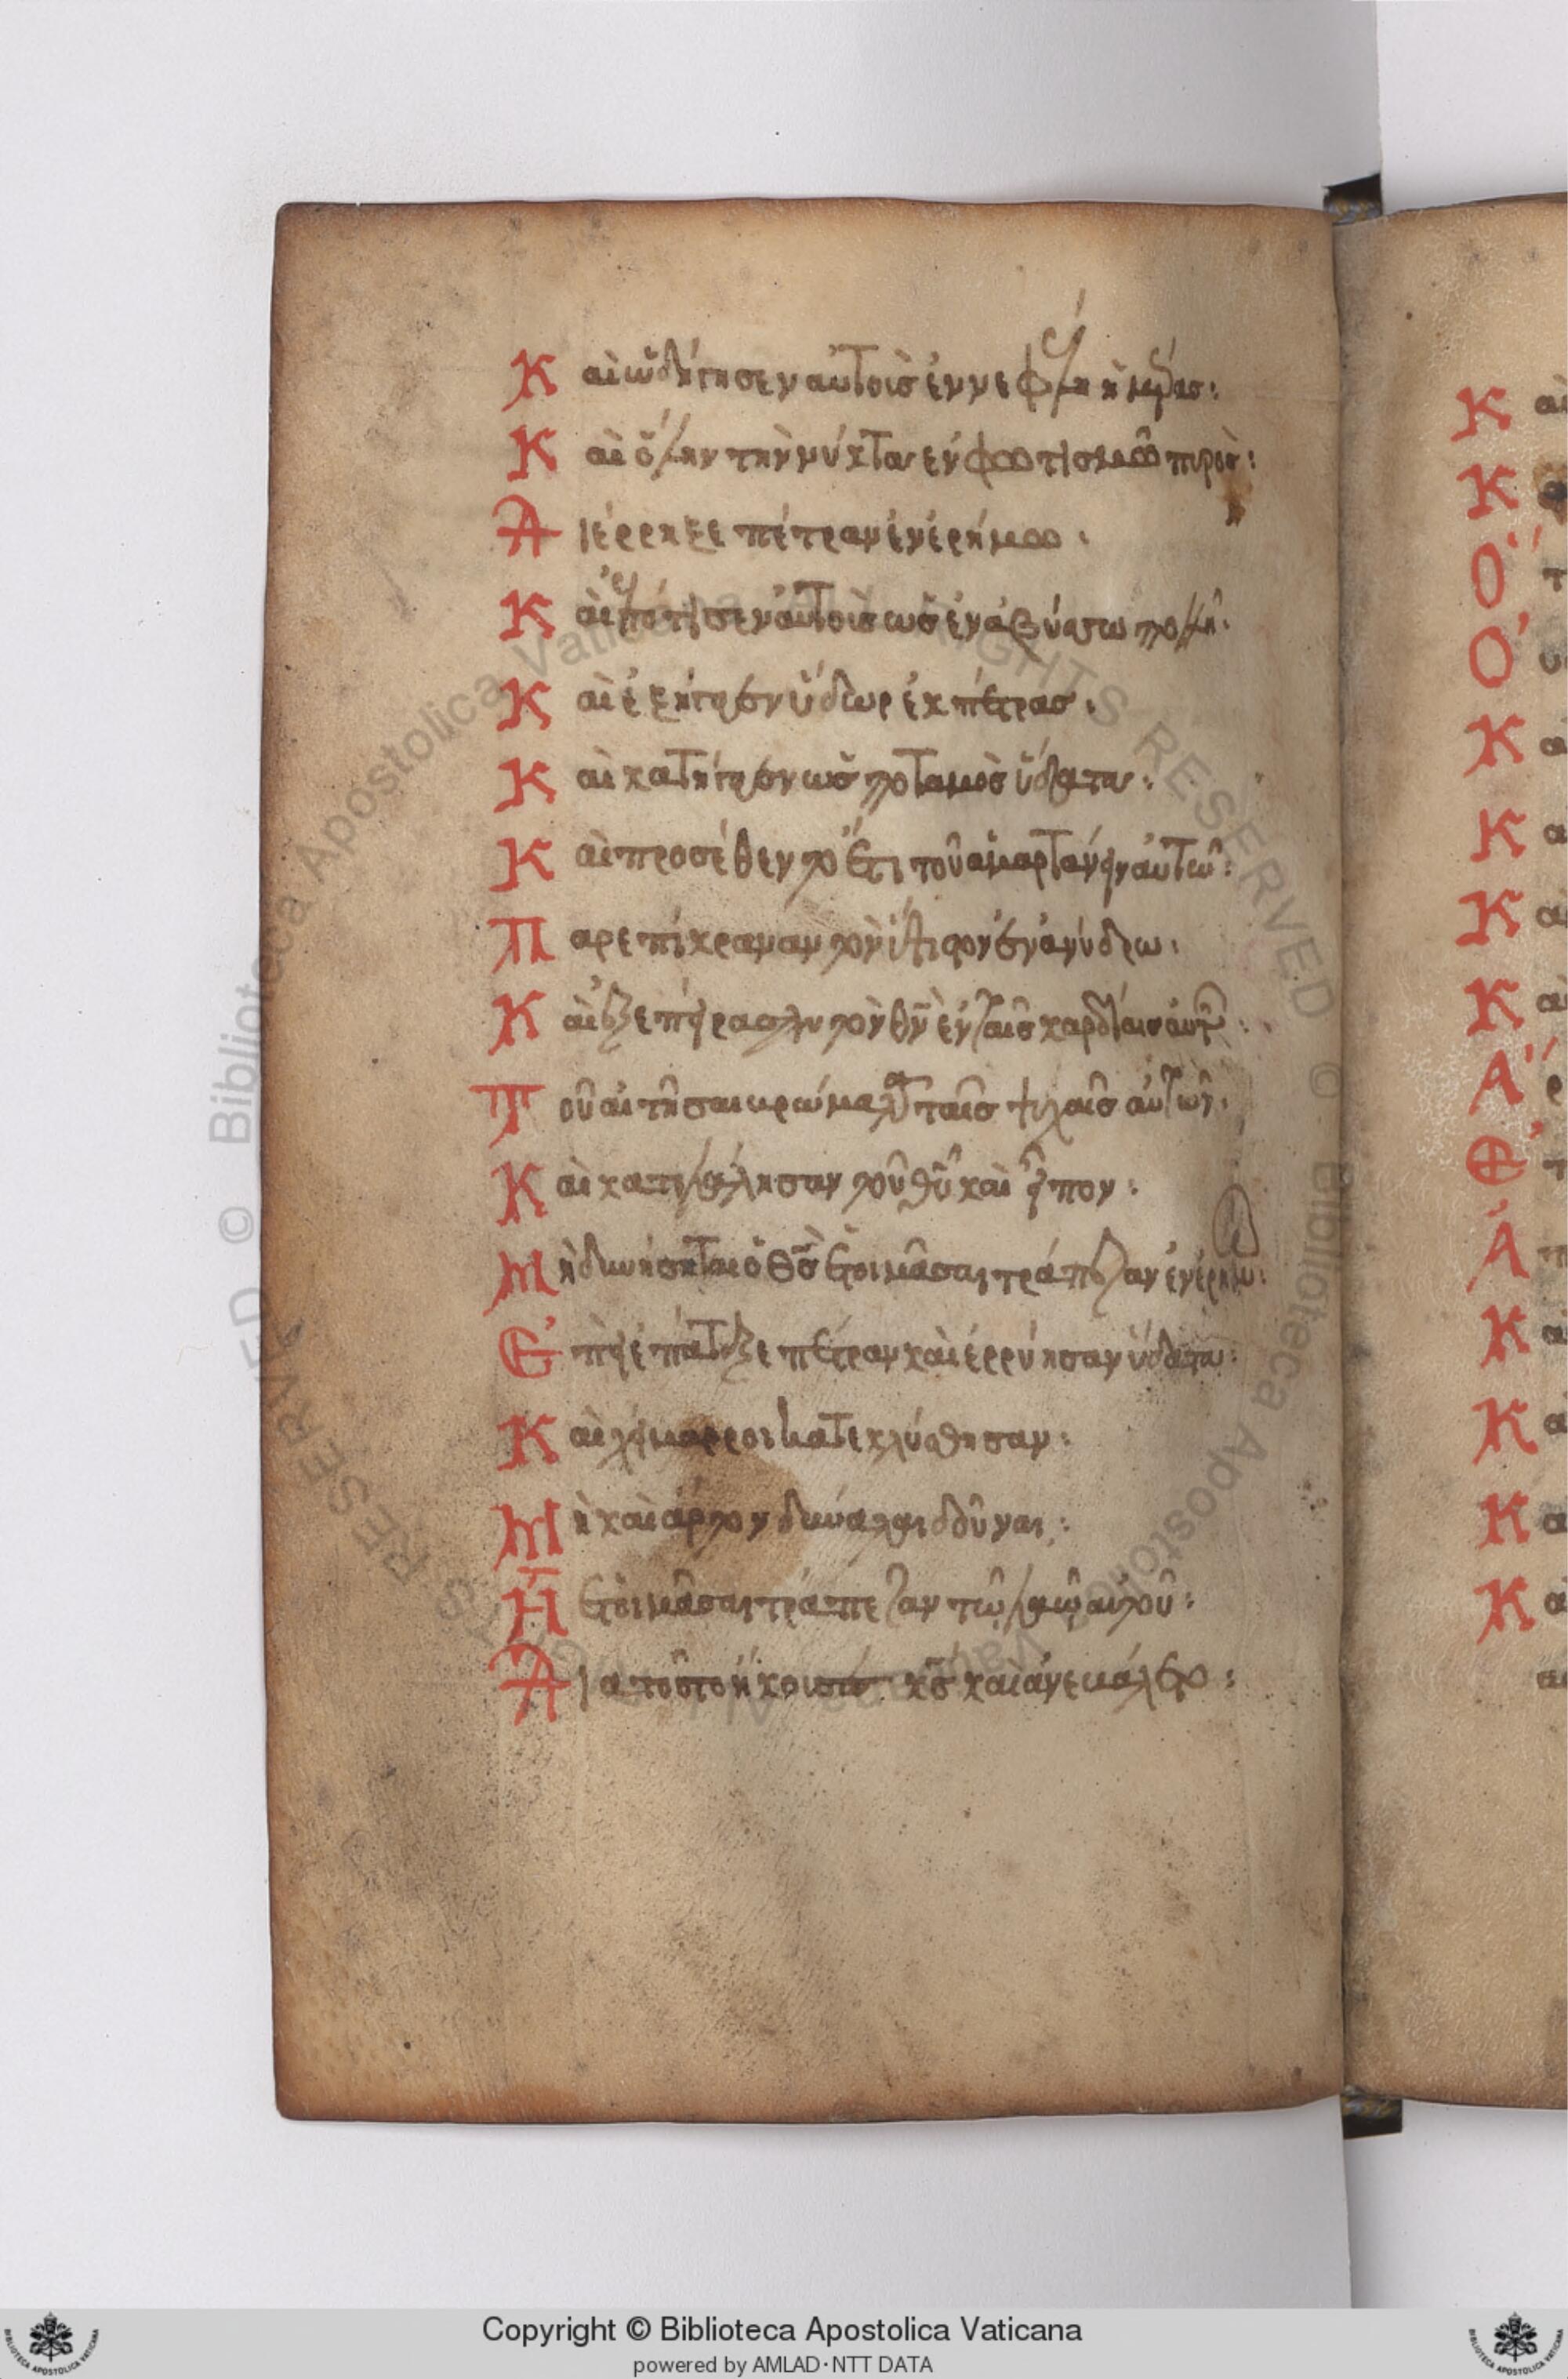 Καὶ ὡδήγησεν αὐτοὺς ἐν νεφέλη ἡμέρας:
Καὶ ὅλην τὴν νύκτα ἐν φωτισμῶ πυρὸς:
Διέρρηξε πέτραν ἐν ἐρήμω:
Καὶ ἐπότισεν αὐτοὺς ὡς ἐν ἀβύσσω πολλῆ:
Καὶ ἐξήγαγεν ὕδωρ ἐκ πέτρας:
Καὶ κατήγαγεν ὡς ποταμοὺς ὕδατα:
Καὶ προσέθεντο ἔτι τοῦ ἁμαρτάνειν αὐτῶ:
Παρεπίκραναν τὸν ὕψιστον ἐν ἀνύδρω:
Καὶ ἐξεπείρασαν τὸν θν ἐν ταῖς καρδίαις αὐτῶν:
Τοῦ αἰτῆσαι βρώματα ταῖς ψυχαῖς αὐτῶν:
Καὶ κατελάλησαν τοῦ θυ καὶ εἶπον:
Μὴ δυνήσεται ὁ θς ἑτοιμᾶσαι τράπεζαν ἐν ἐρήμω:
Ἐπεὶ ἐπάταξε πέτραν καὶ ἐρρύησαν ὕδατα:
Καὶ χείμαρροι κατεκλύσθησαν:
Μὴ καὶ ἄρτον δύναται δοῦναι:
Ἢ ἑτοιμᾶσαι τράπεζαν τῶ λαῶ αὐτοῦ:
Διὰ τοῦτο ἤκουσε κς καὶ ἀνεβάλετο:
Copyright © Biblioteca Apostolica Vaticana
powered by AMLAD·NTT DATA